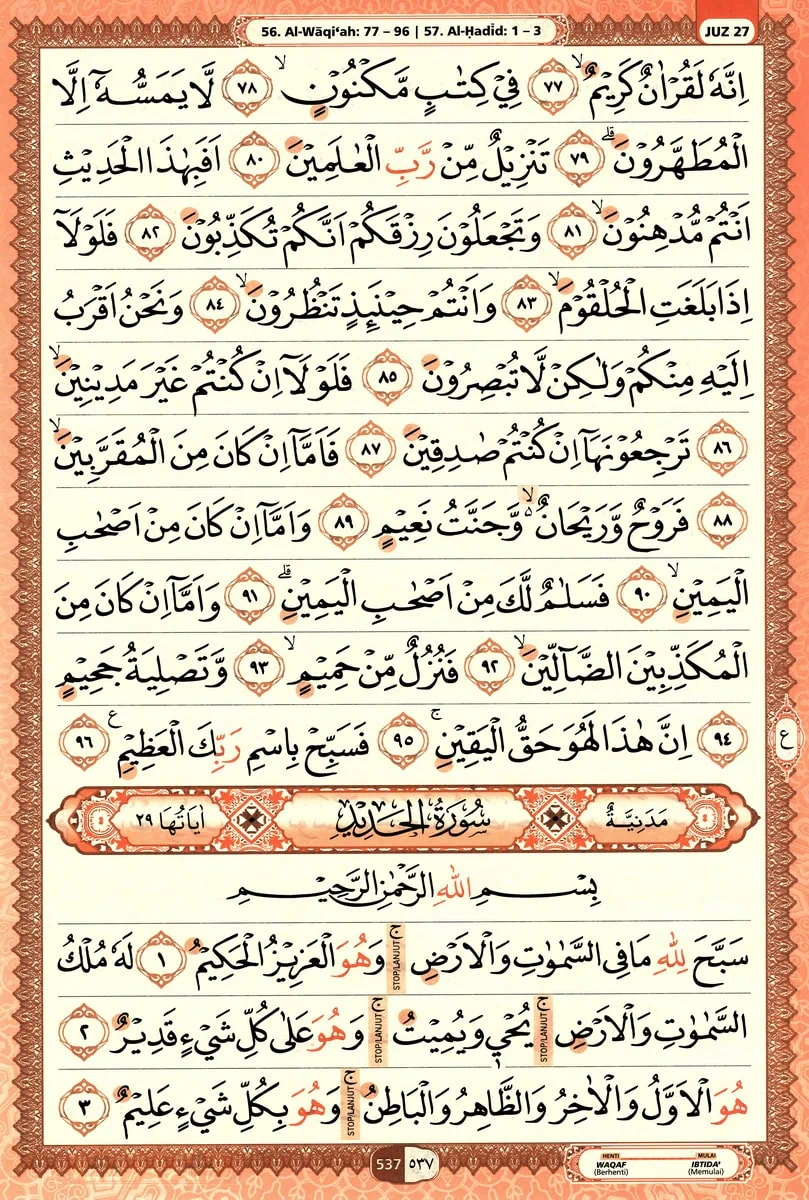 56. Al-Wāqi‘ah: 77 – 96 | 57. Al-Ḥadīd: 1 – 3
JUZ 27
اِنَّهٗ لَقُرْاٰنٌ كَرِيْمٌۙ ٧٧ فِيْ كِتٰبٍ مَّكْنُوْنٍۙ ٧٨ لَّا يَمَسُّهٗٓ اِلَّا
الْمُطَهَّرُوْنَۗ ٧٩ تَنْزِيْلٌ مِّنْ رَّبِّ الْعٰلَمِيْنَ ٨٠ اَفَبِهٰذَا الْحَدِيْثِ
اَنْتُمْ مُّدْهِنُوْنَۙ ٨١ وَتَجْعَلُوْنَ رِزْقَكُمْ اَنَّكُمْ تُكَذِّبُوْنَ ٨٢ فَلَوْلَآ
اِذَا بَلَغَتِ الْحُلْقُوْمَۙ ٨٣ وَاَنْتُمْ حِيْنَىِٕذٍ تَنْظُرُوْنَۙ ٨٤ وَنَحْنُ اَقْرَبُ
اِلَيْهِ مِنْكُمْ وَلٰكِنْ لَّا تُبْصِرُوْنَ ٨٥ فَلَوْلَآ اِنْ كُنْتُمْ غَيْرَ مَدِيْنِيْنَۙ
٨٦ تَرْجِعُوْنَهَآ اِنْ كُنْتُمْ صٰدِقِيْنَ ٨٧ فَاَمَّآ اِنْ كَانَ مِنَ الْمُقَرَّبِيْنَۙ
٨٨ فَرَوْحٌ وَّرَيْحَانٌ ەۙ وَّجَنَّتُ نَعِيْمٍ ٨٩ وَاَمَّآ اِنْ كَانَ مِنْ اَصْحٰبِ
الْيَمِيْنِۙ ٩٠ فَسَلٰمٌ لَّكَ مِنْ اَصْحٰبِ الْيَمِيْنِۗ ٩١ وَاَمَّآ اِنْ كَانَ مِنَ
الْمُكَذِّبِيْنَ الضَّاۤلِّيْنَۙ ٩٢ فَنُزُلٌ مِّنْ حَمِيْمٍۙ ٩٣ وَّتَصْلِيَةُ جَحِيْمٍ
٩٤ اِنَّ هٰذَا لَهُوَ حَقُّ الْيَقِيْنِۚ ٩٥ فَسَبِّحْ بِاسْمِ رَبِّكَ الْعَظِيْمِ ع ٩٦
ع
مَدَنِيَّةٌ سُوْرَةُ الْحَدِيْدِ اٰيَاتُهَا ٢٩
بِسْمِ اللّٰهِ الرَّحْمٰنِ الرَّحِيْمِ
سَبَّحَ لِلّٰهِ مَا فِى السَّمٰوٰتِ وَالْاَرْضِۚ STOP/LANJUT وَهُوَ الْعَزِيْزُ الْحَكِيْمُ ١ لَهٗ مُلْكُ
السَّمٰوٰتِ وَالْاَرْضِۚ STOP/LANJUT يُحْيٖ وَيُمِيْتُۚ STOP/LANJUT وَهُوَ عَلٰى كُلِّ شَيْءٍ قَدِيْرٌ ٢
هُوَ الْاَوَّلُ وَالْاٰخِرُ وَالظَّاهِرُ وَالْبَاطِنُۚ STOP/LANJUT وَهُوَ بِكُلِّ شَيْءٍ عَلِيْمٌ ٣
537 ٥٣٧
HENTI MULAI
WAQAF IBTIDA'
(Berhenti) (Memulai)